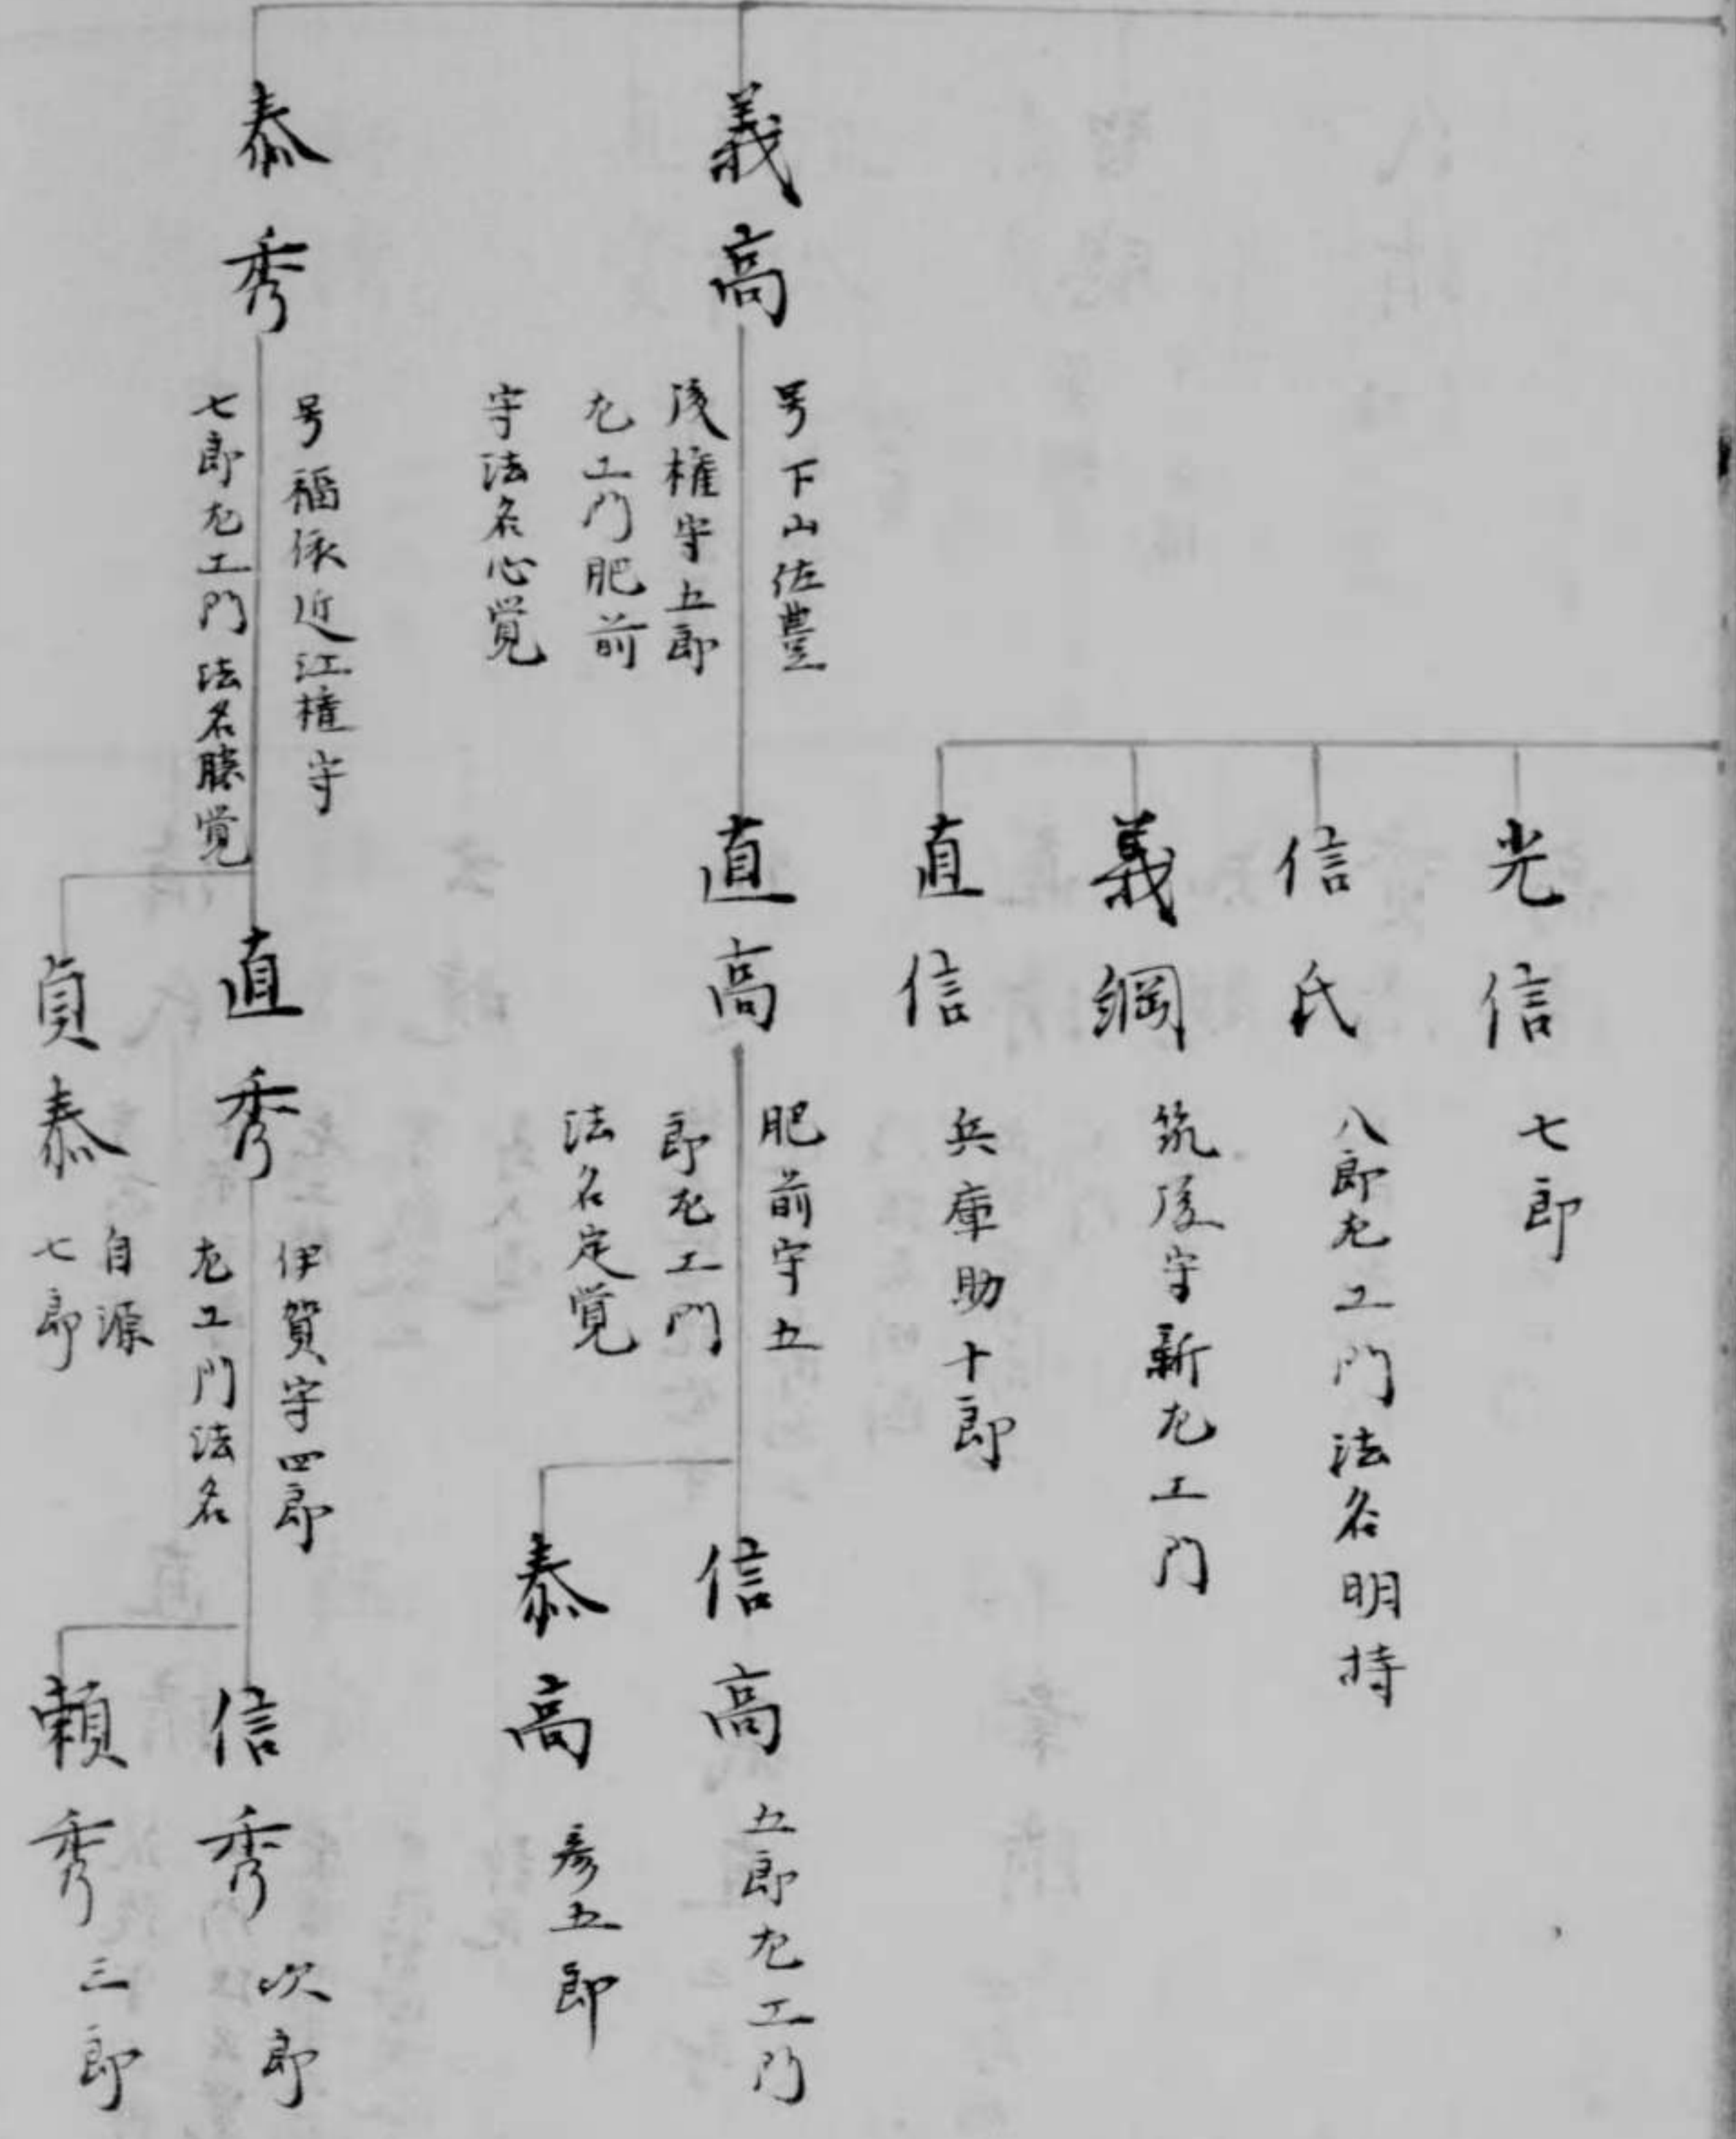 光信
七郎
信氏
八郎左エ門法名明時
義綱
筑後守新左エ門
直信
兵庫助十郎
義高
号下山佐豊
後権守五郎
左エ門肥前
守法名心覚
直高
肥前守五
郎左エ門
法名定覚
信高
五郎左エ門
泰高
彦五郎
泰秀
号福依近江権守
七郎左エ門法名勝覚
直秀
伊賀守四郎
左エ門法名
自源
信秀
次郎
頼秀
三郎
貞泰
七郎